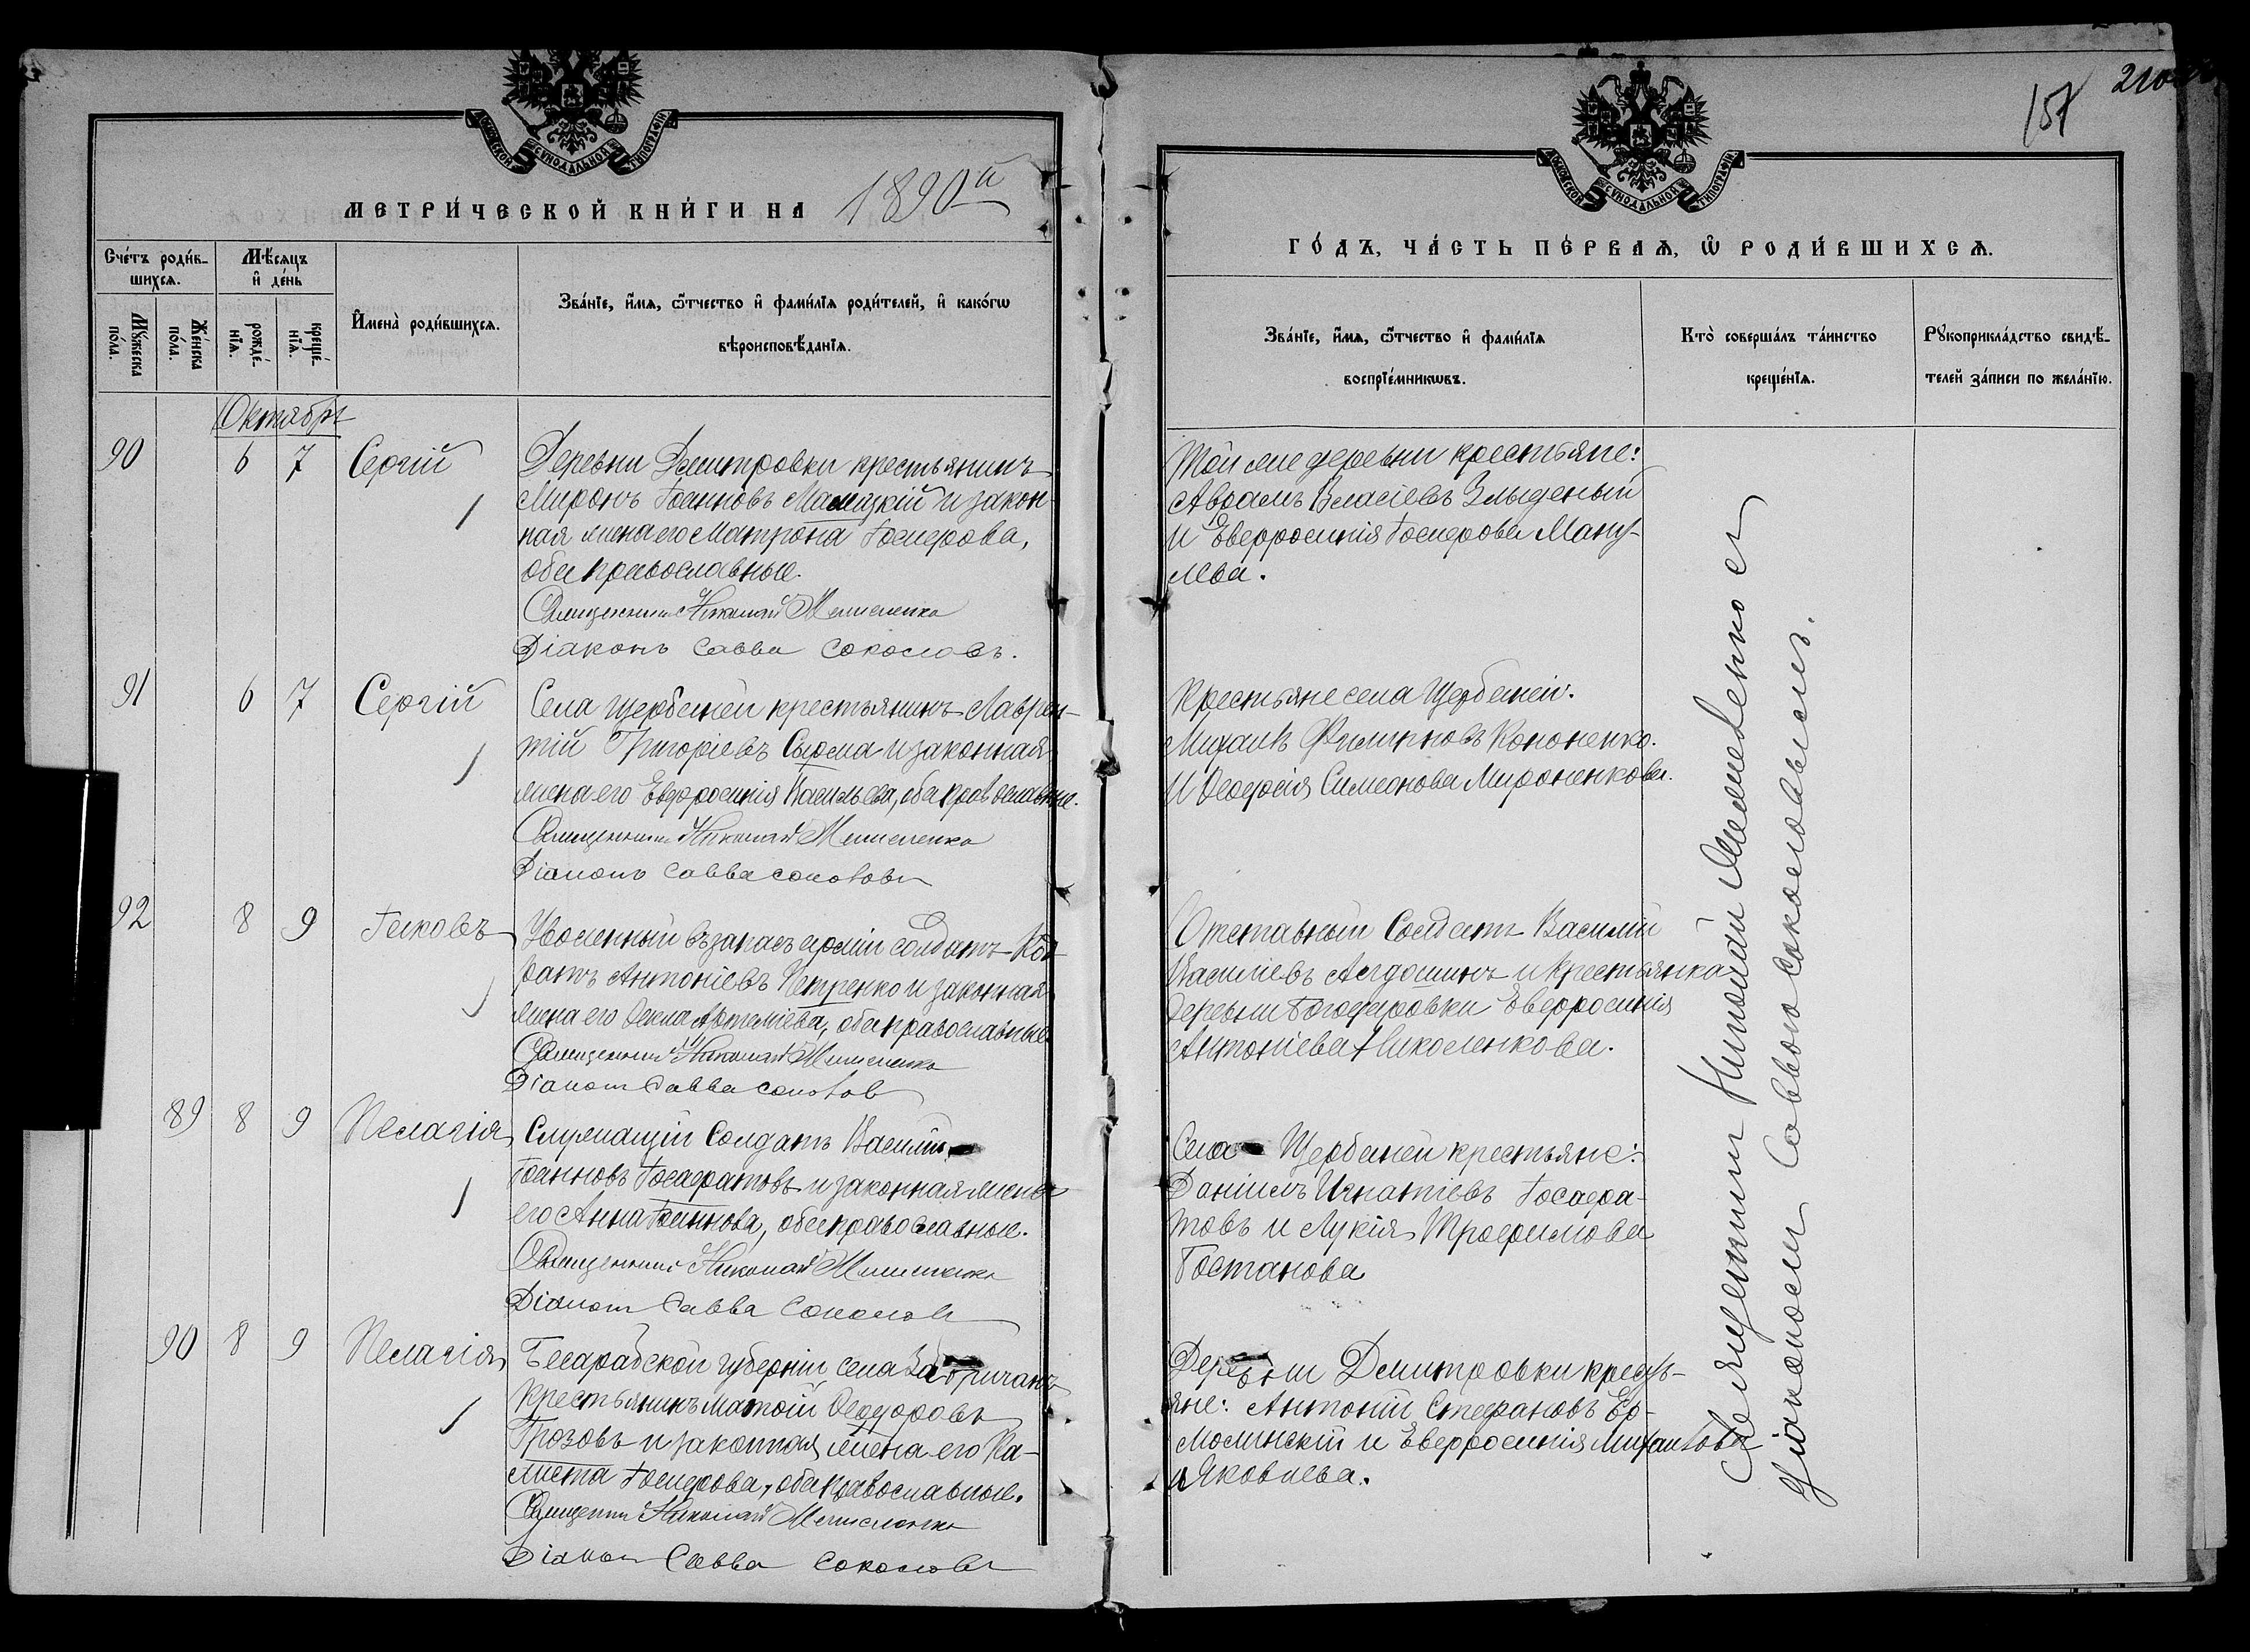 МОСКОВСКОЙ СѴНОДАЛЬНОЙ ТИПОГРАФІИ
МЕТРИ́ЧЕСКОЙ КНИ́ГИ НА 1890й
Сче́тъ роди́в-
шихсѧ.
Мѣ́сяцъ
и҆ де́нь
Мꙋ́жеска
по́ла.
Же́нска
по́ла.
рожде́-
нїѧ.
креще́-
нїѧ.
И҆мена̀ роди́вшихсѧ.
Зва́нїе, и҆́мѧ, ѻ҆́тчество и҆ фами́лїѧ роди́телей, и҆ како́гѡ
вѣроисповѣ́данїѧ.
Октябрь
90 6 7 Сергій
Деревни Дмитровки крестьянинъ
Миронъ Іоанновъ и закон-
ная жена его Матрона Іосифова,
оба православные.
Священникъ Николай
Діаконъ Савва Соколовъ.
91 6 7 Сергій
Села Щербаней крестьянинъ Лаврен-
тій Григоріевъ Сырма и законная
жена его Евфросинія Васильева, оба православные.
Священникъ Николай
Діаконъ Савва Соколовъ
92 8 9 Іаковъ
Уволенный въ запасъ арміи солдатъ Код-
ратъ Антоніевъ Петренко и законная
жена его Ѳекла Артеміева, оба православные
Священникъ Николай
Діаконъ Савва Соколовъ
89 8 9 Пелагія
Служащій Солдатъ Василій
Іоанновъ Іосафатовъ и законная жена
его Анна Іоаннова, оба православные.
Священникъ Николай
Діаконъ Савва Соколовъ
90 8 9 Пелагія
Бесарабской губерніи села
крестьянинъ Матѳій Ѳеодоровъ
Грозовъ и законная жена его Ка-
листа Іосифова, оба православные.
Священникъ Николай
Діаконъ Савва Соколовъ
157
210
МОСКОВСКОЙ СѴНОДАЛЬНОЙ ТИПОГРАФІИ
ГО́ДЪ, ЧА́СТЬ ПЕ́РВАѦ, Ѽ РОДИ́ВШИХСѦ.
Зва́нїе, и҆́мѧ, ѻ҆́тчество и҆ фами́лїѧ
воспрїе́мникѡвъ.
Кто̀ соверша́лъ та́инство
креще́нїѧ.
Рꙋкоприкла́дство свидѣ́-
телей за́писи по жела́нїю.
Той же деревни крестьяне:
Аврамъ Власіевъ Злыденый
и Евфросинія Іосифова Ману-
лова.
Крестьяне села Щербаней:
Михаилъ Филиповъ Кононенко.
и Ѳеодосія Симеонова Мироненкова.
Отставный Солдатъ Василій
Василіевъ и крестьянка
деревни Евфросинія
Антоніева Николенкова.
Села Щербаней крестьяне:
Даніилъ Игнатіевъ Іосафа-
товъ и Лукія Трофимова
Бостанова
Деревни Дмитровки кресть-
яне: Антоній Стефановъ Ер-
молинскій и Евфросинія Михаилова
Яковлева.
Священникъ Николай съ
діакономъ Саввою Соколовымъ.